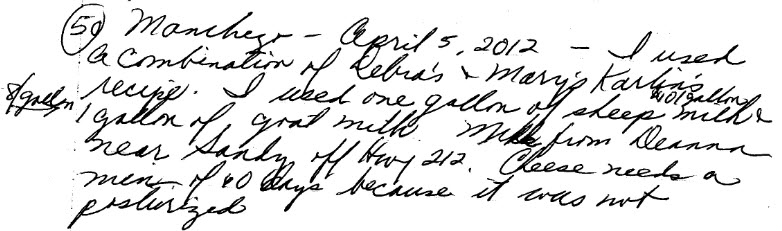 50 Manchego - April 5, 2012 - I used
a combination of Debra's & Mary's Karlin's
recipe. I used one gallon of sheep milk &
1 gallon of goat milk. Milk from Deanna
near Sandy off Hwy 212. Cheese needs a
men. of 60 days because it was not
posturized